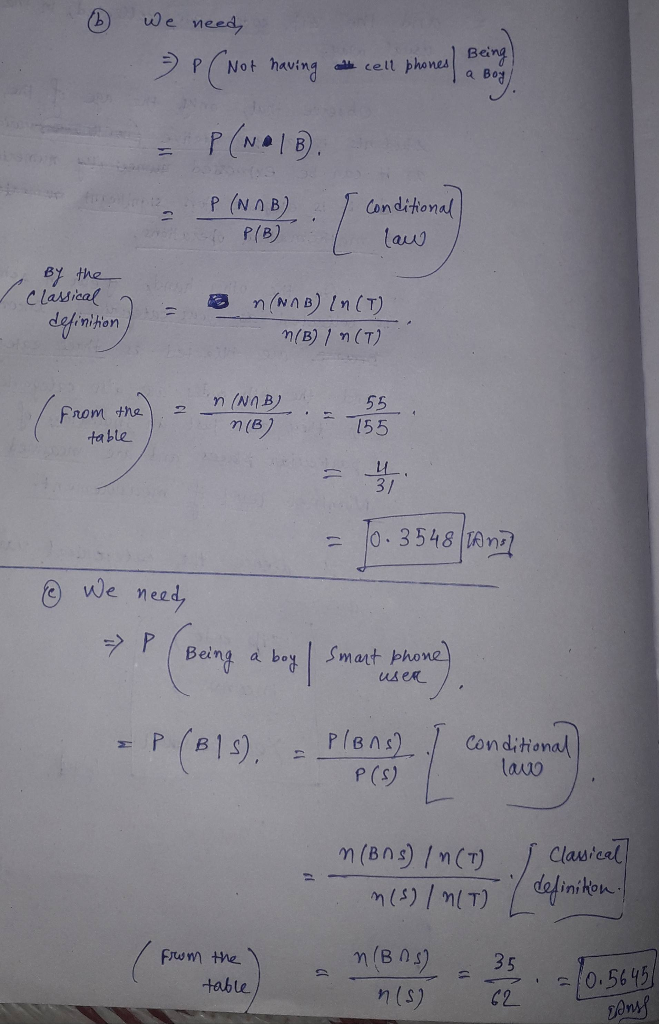 (b) We need,
⇒ P (Not having cell phones | Being a Boy).
= P(N | B).
= P(N∩B) / P(B) . [Conditional law]
(By the Classical definition) = n(N∩B) / n(T) / n(B) / n(T) .
(From the table) = n(N∩B) / n(B) . = 55 / 155 .
= 11 / 31 .
= 0.3548 [Ans]
(c) We need,
⇒ P (Being a boy | Smart phone user).
= P(B | S). = P(B∩S) / P(S) . [Conditional law].
= n(B∩S) / n(T) / n(S) / n(T) . [Classical definition.]
(From the table) = n(B∩S) / n(S) = 35 / 62 . = 0.5645 [Ans]